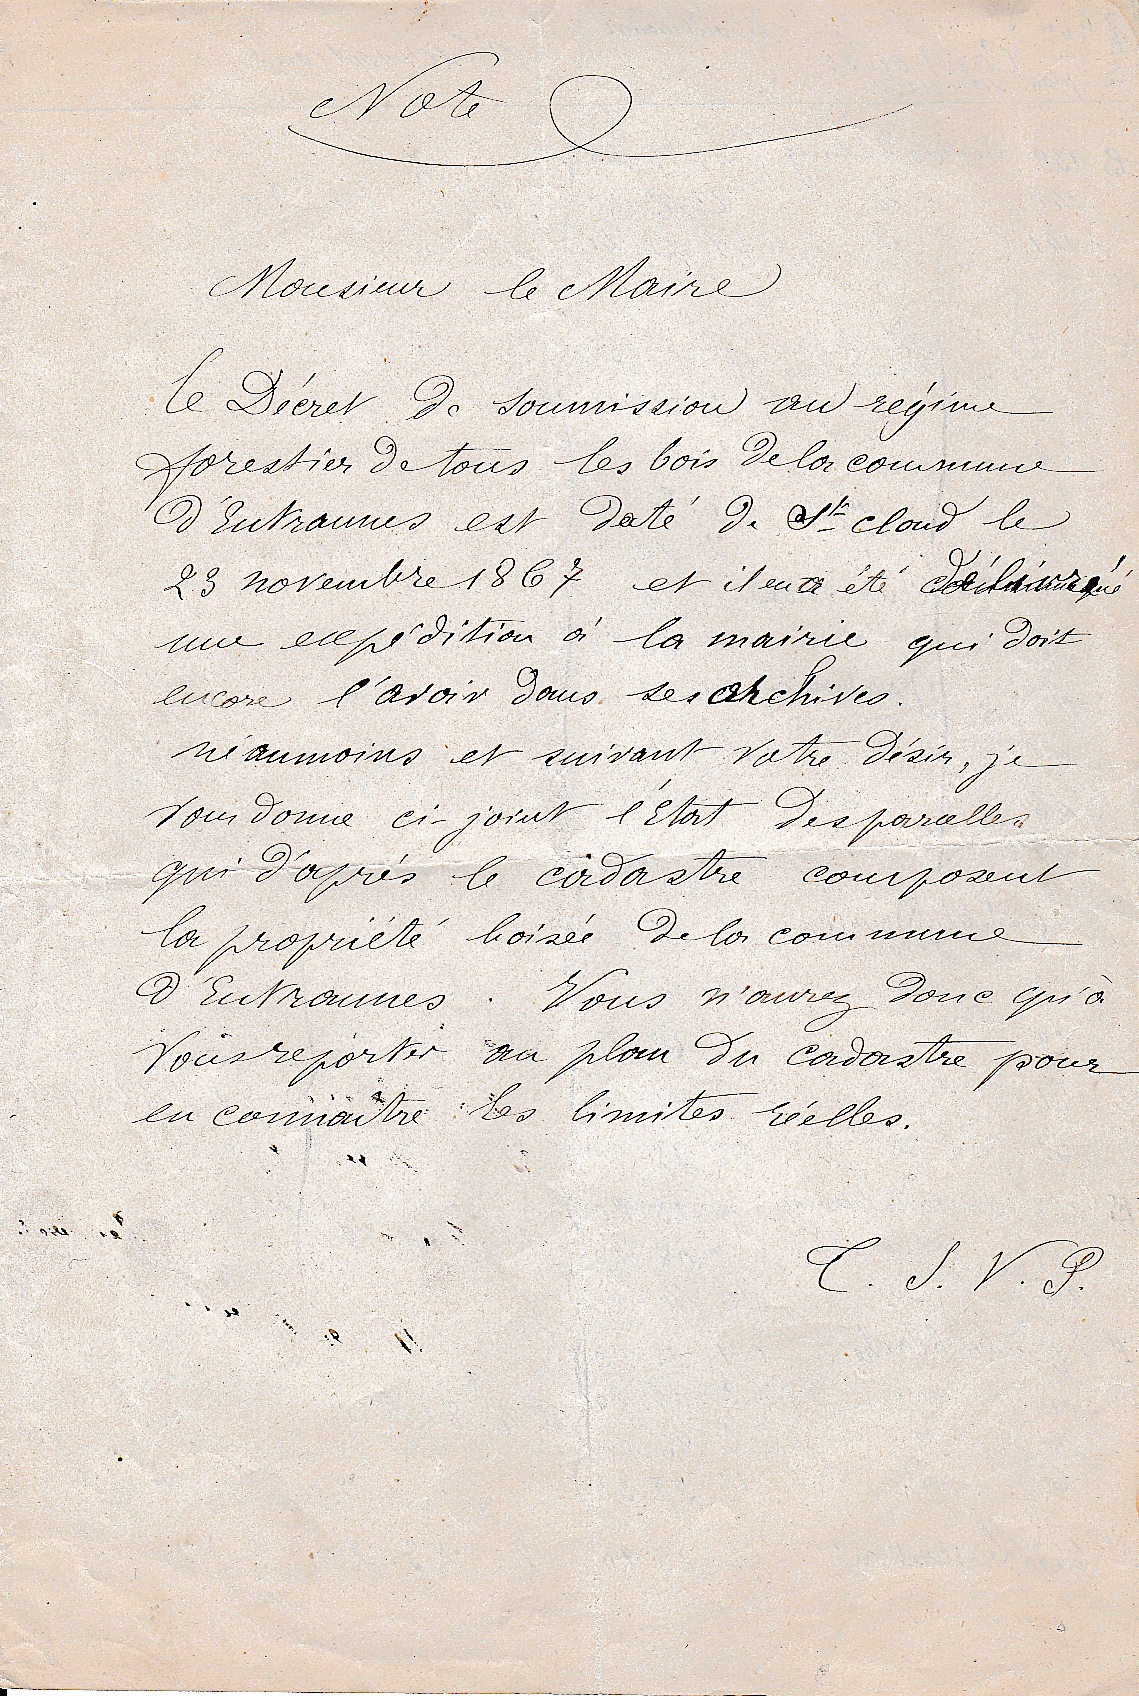 Note
Monsieur le Maire
Le Décret de soumission au régime
forestier de tous les bois de la commune
d'Entraunes est daté de St cloud le
23 novembre 1867 et il en a été
une expédition à la mairie qui doit
encore l'avoir dans ses archives.
néanmoins et suivant votre désir, je
vous donne ci-joint l'État des parcelles
qui d'après le cadastre composent
la propriété boisée de la commune
d'Entraunes. Vous n'aurez donc qu'à
vous reporter au plan du cadastre pour
en connaître les limites réelles.
T. S. V. P.